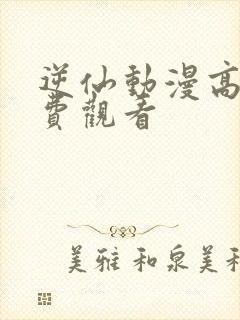 逆仙動漫高
費觀看
美雅和泉美和